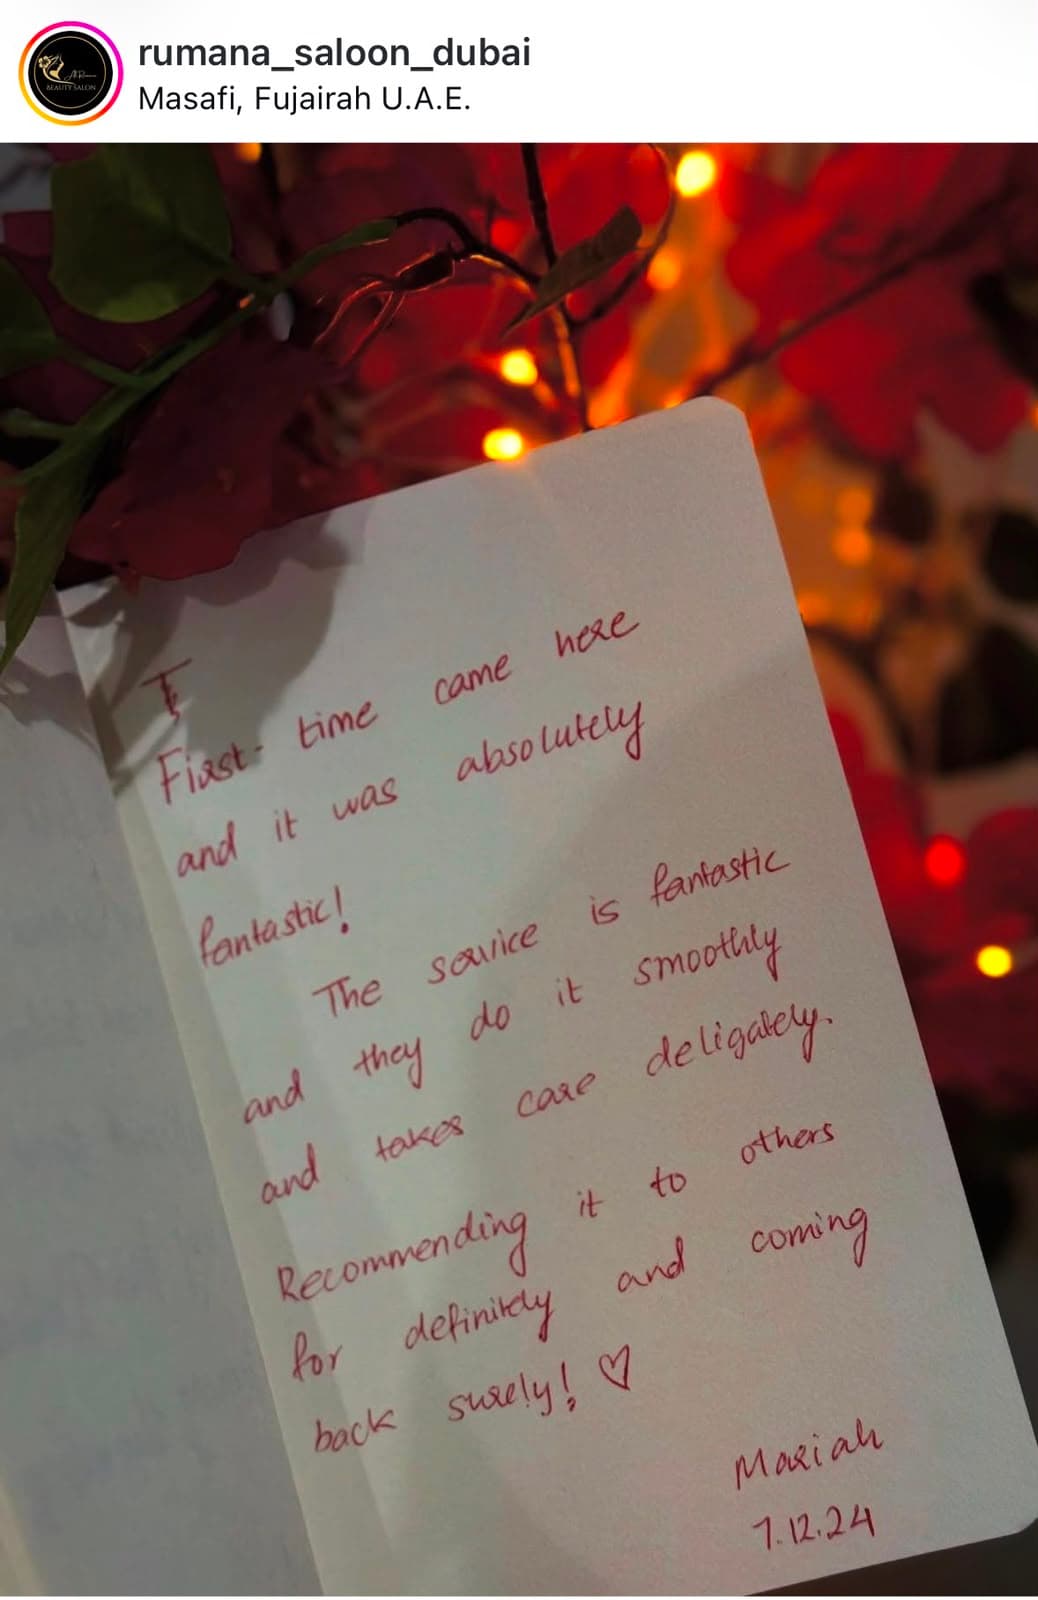 rumana_saloon_dubai
Masafi, Fujairah U.A.E.
BEAUTY SALON
I
First- time came here
and it was absolutely
fantastic!
The service is fantastic
and they do it smoothly
and takes care deligately.
Recommending it to others
for definitely and coming
back surely! ♡
Mariah
7.12.24